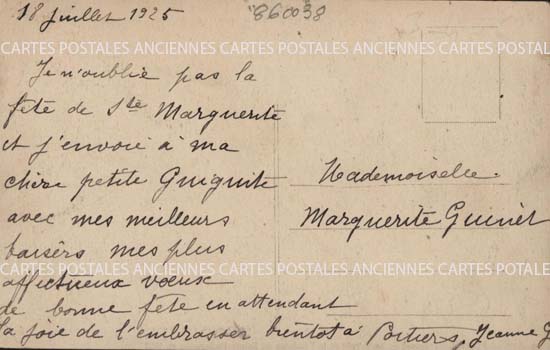 18 Juillet 1925
860038
CARTES POSTALES ANCIENNES CARTES POSTALES ANCIENNES CARTES POSTALES
Je n'oublie pas la
fête de Ste Marguerite
et j'envoie à ma
chère petite Guiguite
avec mes meilleurs
baisers mes plus
affectueux vœux
de bonne fête en attendant
la joie de l'embrasser bientot à Poitiers, Jeanne G
Mademoiselle
Marguerite Guinet
CARTES POSTALES ANCIENNES CARTES POSTALES ANCIENNES CARTES POSTALES